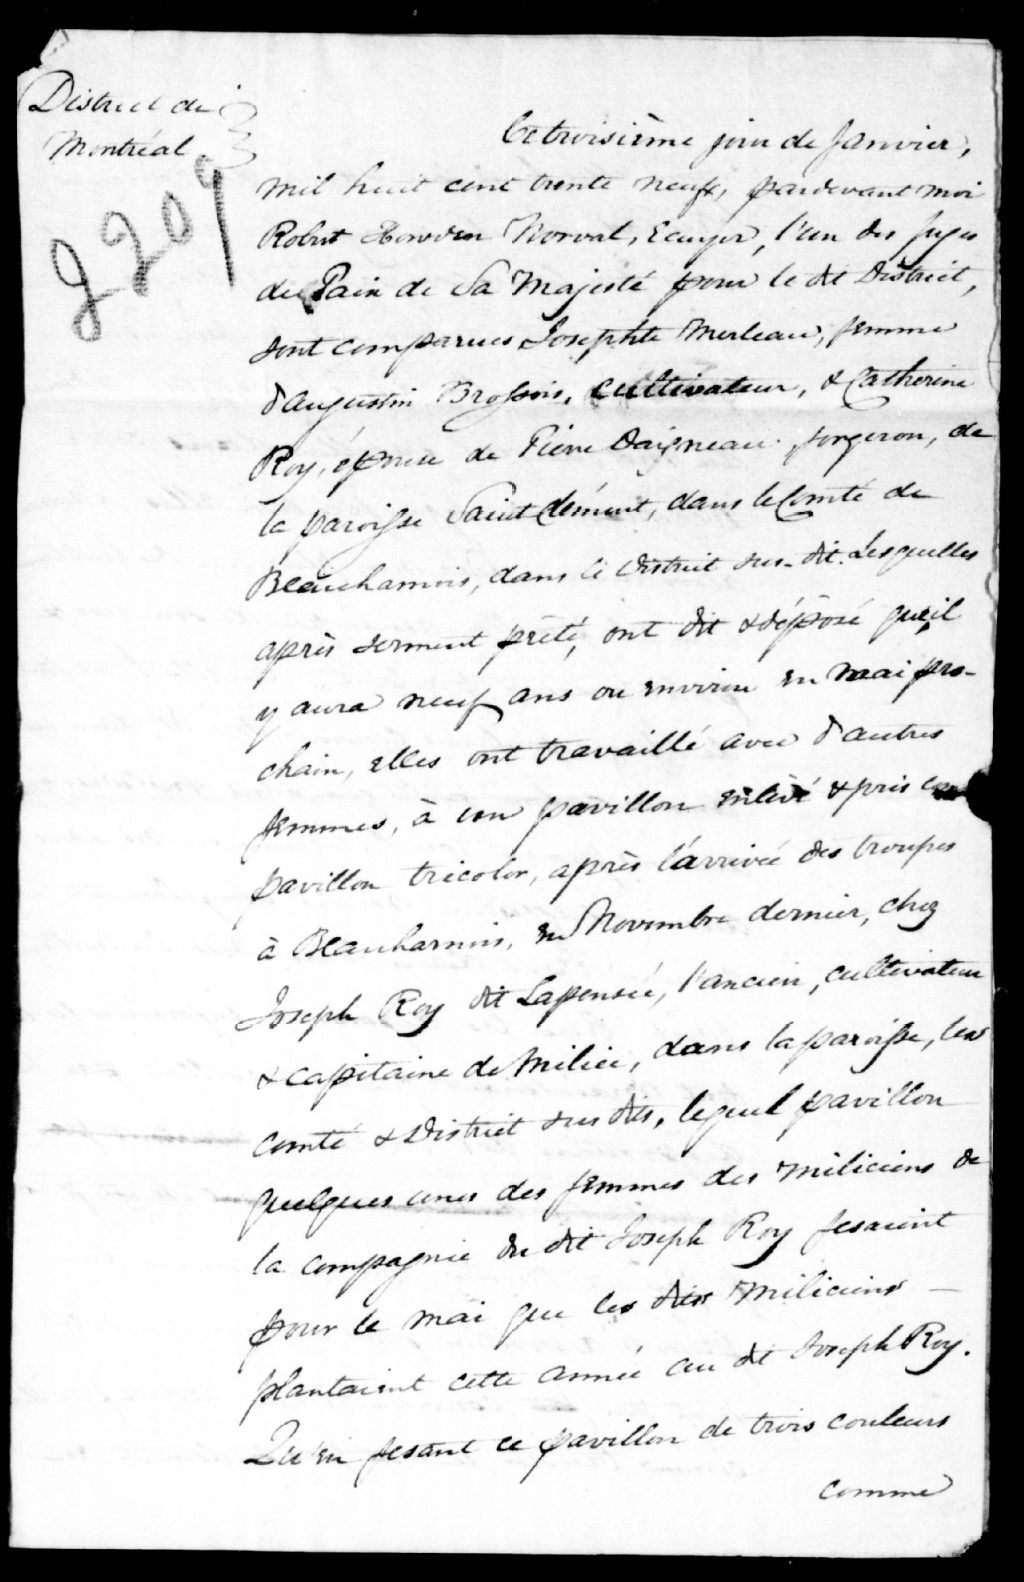 District de
Montréal
2209
Ce troisième jour de Janvier,
mil huit cent trente neuf, pardevant moi
Robert Howden Norval, Ecuyer, l'un des Juges
de Paix de Sa Majesté pour le dit District,
sont comparues Josephte Merleau, femme
d'Augustin Brossois, cultivateur, & Catherine
Roy, épouse de Pierre Daigneau, forgeron, de
la paroisse Saint Clément, dans le Comté de
Beauharnois, dans le District sus-dit. Lesquelles
après serment prêté, ont dit & déposé qu'il
y aura neuf ans ou environ en mai pro-
chain, elles ont travaillé avec d'autres
femmes, à un pavillon enlevé & pris
pavillon tricolor, après l'arrivée des troupes
à Beauharnois, en Novembre dernier, chez
Joseph Roy dit Lapensée, l'ancien, cultivateur
& capitaine de Milice, dans la paroisse, les
comté & District sus dits, lequel pavillon
quelques unes des femmes des miliciens de
la compagnie du dit Joseph Roy fesaient
pour le mai que les dits miliciens —
plantaient cette année au dit Joseph Roy.
Qu'en fesant ce pavillon de trois couleurs
comme